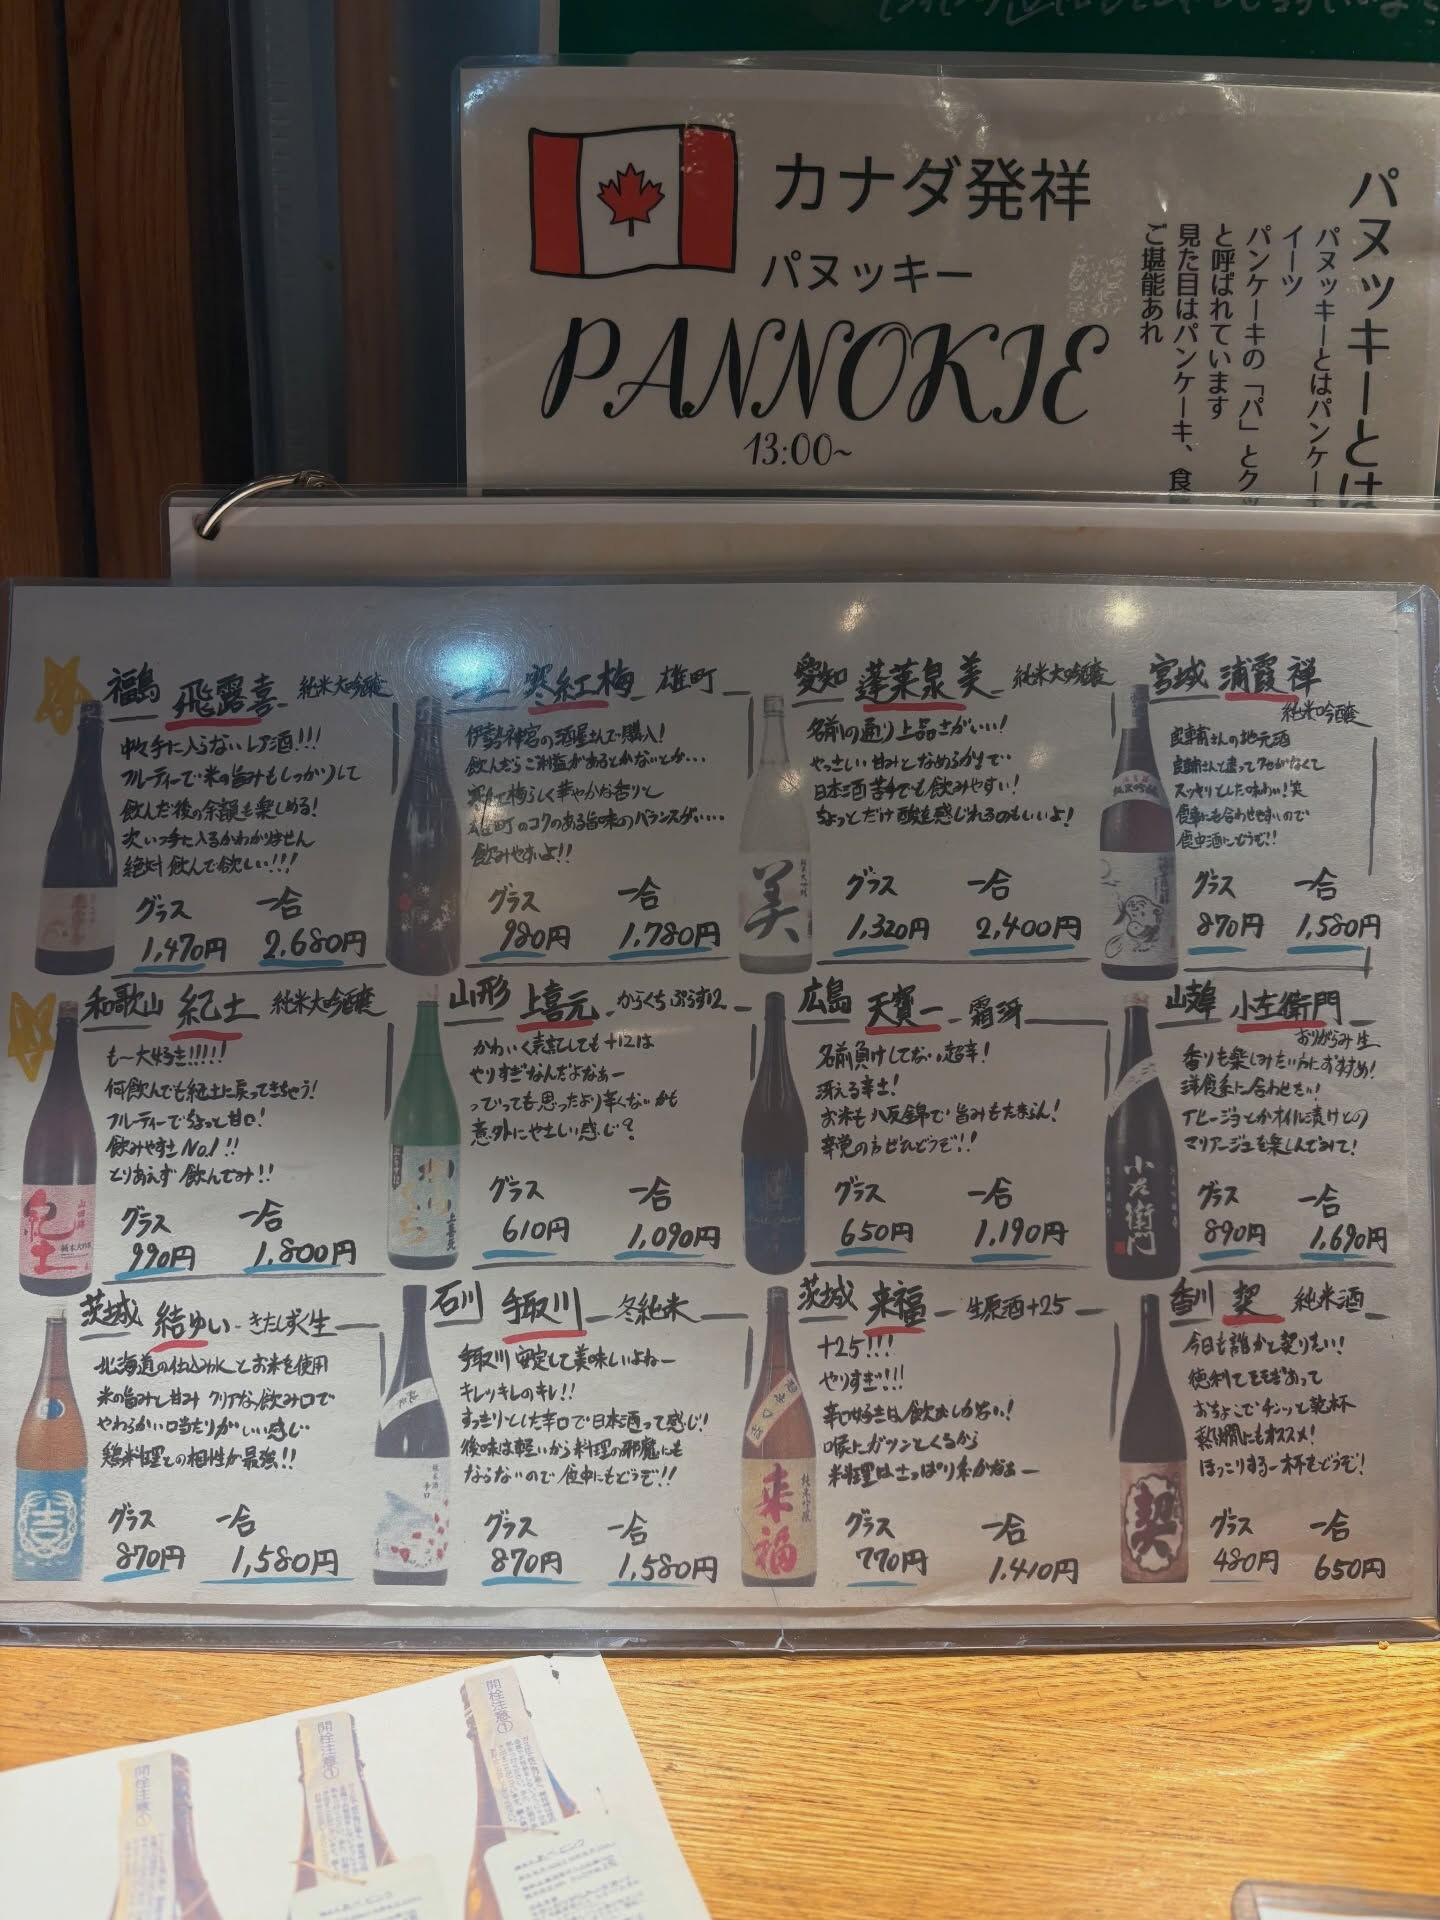 カナダ発祥
パヌッキー
PANNOKIE
13:00~
パヌッキーとは
パヌッキーとはパンケーキ
イーツ
パンケーキの「パ」とクッ
と呼ばれています
見た目はパンケーキ、食
ご堪能あれ
福島 飛露喜 純米大吟醸
中々手に入らないレア酒!!!
フルーティーで米の旨みもしっかりして
飲んだ後の余韻も楽しめる!
次いつ手に入るかわかりません
絶対飲んで欲しい!!!
グラス 一合
1,470円 2,680円
寒紅梅 雄町
伊勢神宮の酒屋さんで購入!
飲んだらご利益があるとかないとか…
寒紅梅らしく華やかな香りと
雄町のコクのある旨味のバランスが….
飲みやすいよ!!
グラス 一合
980円 1,780円
愛知 蓬莱泉 美 純米大吟醸
名前の通り上品さがいい!
やさしい甘みとなめらかさで…
日本酒苦手でも飲みやすい!
ちょっとだけ酸を感じれるのもいいよ!
美
グラス 一合
1,320円 2,400円
宮城 浦霞 禅
純米吟醸
さんの地元酒
さんと違ってクセがなくて
スッキリとした味わい!笑
食事にも合わせやすいので
食中酒にどうぞ!!
グラス 一合
870円 1,580円
和歌山 紀土 純米大吟醸
も〜大好き!!!!!
何飲んでも紀土に戻ってきちゃう!
フルーティーでちょっと甘口!
飲みやすさNo.1!!
とりあえず飲んでみ!!
紀土
グラス 一合
990円 1,800円
山形 上喜元 からくち ぷらす12
かわいく表記しても+12は
やりすぎなんだよなぁー
っていっても思ったより辛くないかも
意外にやさしい感じ?
グラス 一合
610円 1,090円
広島 天寶一 霜冴
名前負けしてない超辛!
冴える辛さ!
お米も八反錦で旨みもたまらん!
辛党の方ぜひどうぞ!!
グラス 一合
650円 1,190円
小左衛門
おりがらみ生
香りも楽しみたい方におすすめ!
洋食系に合わせたい!
アヒージョとかオイル漬けとの
マリアージュを楽しんでみて!
小左衛門
グラス 一合
890円 1,690円
茨城 結ゆい きたしずく生
北海道の仕込み水とお米を使用
米の旨みと甘み クリアな飲み口で
やわらかい口当たりがいい感じ
鶏料理との相性が最強!!
グラス 一合
870円 1,580円
石川 手取川 冬純米
手取川 安定して美味しいよねー
キレッキレのキレ!!
すっきりとした辛口で日本酒って感じ!
後味は軽いから料理の邪魔にも
ならないので食中にもどうぞ!!
グラス 一合
870円 1,580円
茨城 来福 生原酒+25
+25!!!
やりすぎ!!!
辛口好きは飲むしかない!
喉にガツンとくるから
料理はさっぱり系かなぁー
来福
グラス 一合
770円 1,410円
香川 契 純米酒
今日も誰かと契りたい!
徳利で
おちょこでチンッと乾杯
熱燗にもオススメ!
ほっこりする一杯をどうぞ!
契
グラス 一合
480円 650円
開栓注意①
開栓注意①
開栓注意①